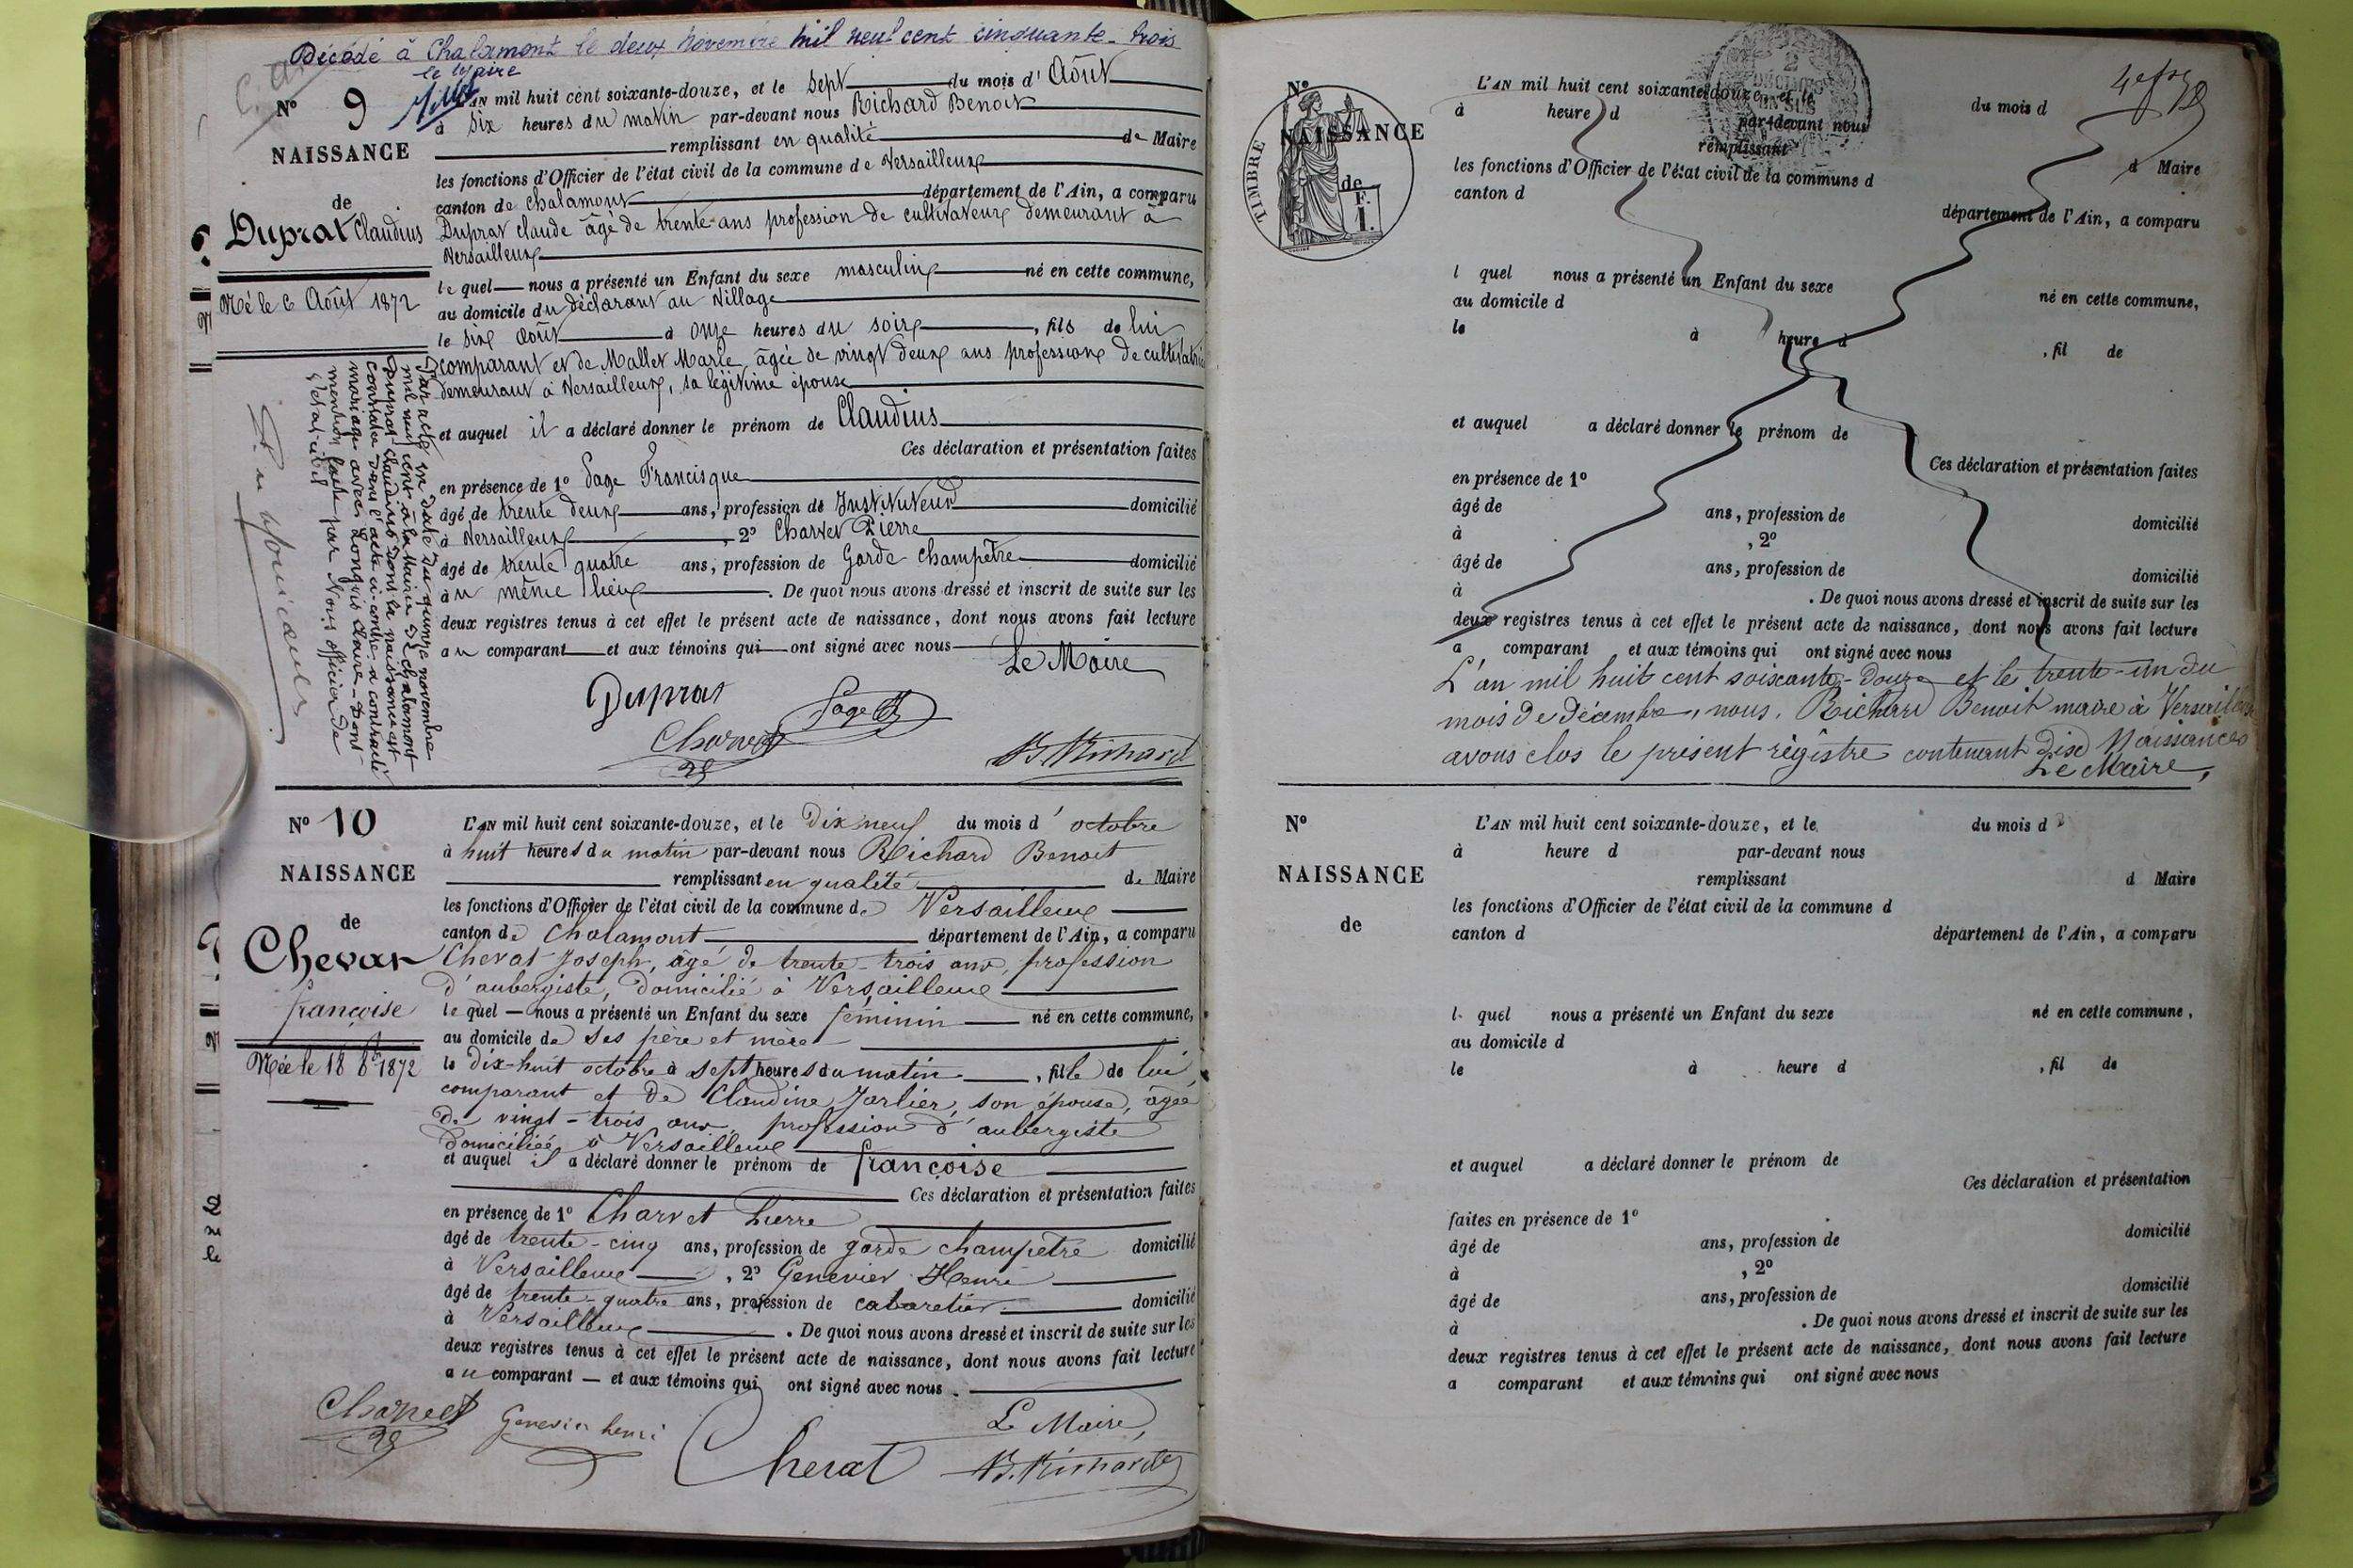 Décédé à Chalamont le deux novembre mil neuf cent cinquante-trois
le Maire
Nº 9
NAISSANCE
de
Duprat Claudius
Né le 6 Août 1872
L'AN mil huit cent soixante-douze, et le sept du mois d' Août
à six heures du matin par-devant nous Richard Benoit
remplissant en qualité de Maire
les fonctions d'Officier de l'état civil de la commune de Versailleux
canton de Chalamont département de l'Ain, a comparu
Duprat Claude âgé de trente ans profession de cultivateur demeurant à
Versailleux
le quel nous a présenté un Enfant du sexe masculin né en cette commune,
au domicile du déclarant au village
le six août à onze heures du soir, fils de lui
comparant et de Mallet Marie âgée de vingt deux ans profession de cultivatrice
demeurant à Versailleux, sa légitime épouse
et auquel il a déclaré donner le prénom de Claudius
Ces déclaration et présentation faites
en présence de 1º Page Francisque
âgé de trente deux ans, profession de Instituteur domicilié
à Versailleux, 2º Charvet Pierre
âgé de trente quatre ans, profession de Garde champêtre domicilié
à u même lieu. De quoi nous avons dressé et inscrit de suite sur les
deux registres tenus à cet effet le présent acte de naissance, dont nous avons fait lecture
au comparant et aux témoins qui ont signé avec nous
Le Maire
Duprat
Page
Charvet
B. Richard
Par acte en date du quinze novembre
mil neuf cent à la Mairie de Chalamont
Duprat Claudius dont la naissance est
constatée dans l'acte ci-contre a contracté
mariage avec Claire Dont
mention faite par Nous officier de
l'état-civil
Nº 10
NAISSANCE
de
Chevat
françoise
Née le 18 8bre 1872
L'AN mil huit cent soixante-douze, et le Dix neuf du mois d' octobre
à huit heures du matin par-devant nous Richard Benoit
remplissant en qualité de Maire
les fonctions d'Officier de l'état civil de la commune de Versailleux
canton de Chalamont département de l'Ain, a comparu
Chevat Joseph, âgé de trente-trois ans, profession
d'aubergiste, domicilié à Versailleux
le quel nous a présenté un Enfant du sexe féminin né en cette commune,
au domicile de ses père et mère
le dix-huit octobre à sept heures du matin, fille de lui,
comparant et de Claudine Jarlier, son épouse, âgée
de vingt-trois ans, profession d'aubergiste
domiciliée à Versailleux
et auquel il a déclaré donner le prénom de françoise
Ces déclaration et présentation faites
en présence de 1º Charvet Pierre
âgé de trente-cinq ans, profession de garde champêtre domicilié
à Versailleux, 2º Genevier Henri
âgé de trente-quatre ans, profession de cabaretier domicilié
à Versailleux. De quoi nous avons dressé et inscrit de suite sur les
deux registres tenus à cet effet le présent acte de naissance, dont nous avons fait lecture
au comparant et aux témoins qui ont signé avec nous.
Le Maire,
Charvet
Genevier henri
Chevat
B. Richard
Nº
NAISSANCE
de
TIMBRE
F.
1.
L'AN mil huit cent soixante-douze, et le du mois d
à heure d par-devant nous
remplissant d Maire
les fonctions d'Officier de l'état civil de la commune d
canton d département de l'Ain, a comparu
l quel nous a présenté un Enfant du sexe né en cette commune,
au domicile d
le à heure d, fil de
et auquel a déclaré donner le prénom de
Ces déclaration et présentation faites
en présence de 1º
âgé de ans, profession de domicilié
à, 2º
âgé de ans, profession de domicilié
à. De quoi nous avons dressé et inscrit de suite sur les
deux registres tenus à cet effet le présent acte de naissance, dont nous avons fait lecture
a comparant et aux témoins qui ont signé avec nous
L'an mil huit cent soixante-douze et le trente-un du
mois de décembre, nous, Richard Benoit maire à Versailleux
avons clos le présent régistre contenant Dix Naissances
Le Maire,
Nº
NAISSANCE
de
L'AN mil huit cent soixante-douze, et le du mois d
à heure d par-devant nous
remplissant d Maire
les fonctions d'Officier de l'état civil de la commune d
canton d département de l'Ain, a comparu
l quel nous a présenté un Enfant du sexe né en cette commune,
au domicile d
le à heure d, fil de
et auquel a déclaré donner le prénom de
Ces déclaration et présentation
faites en présence de 1º
âgé de ans, profession de domicilié
à, 2º
âgé de ans, profession de domicilié
à. De quoi nous avons dressé et inscrit de suite sur les
deux registres tenus à cet effet le présent acte de naissance, dont nous avons fait lecture
a comparant et aux témoins qui ont signé avec nous